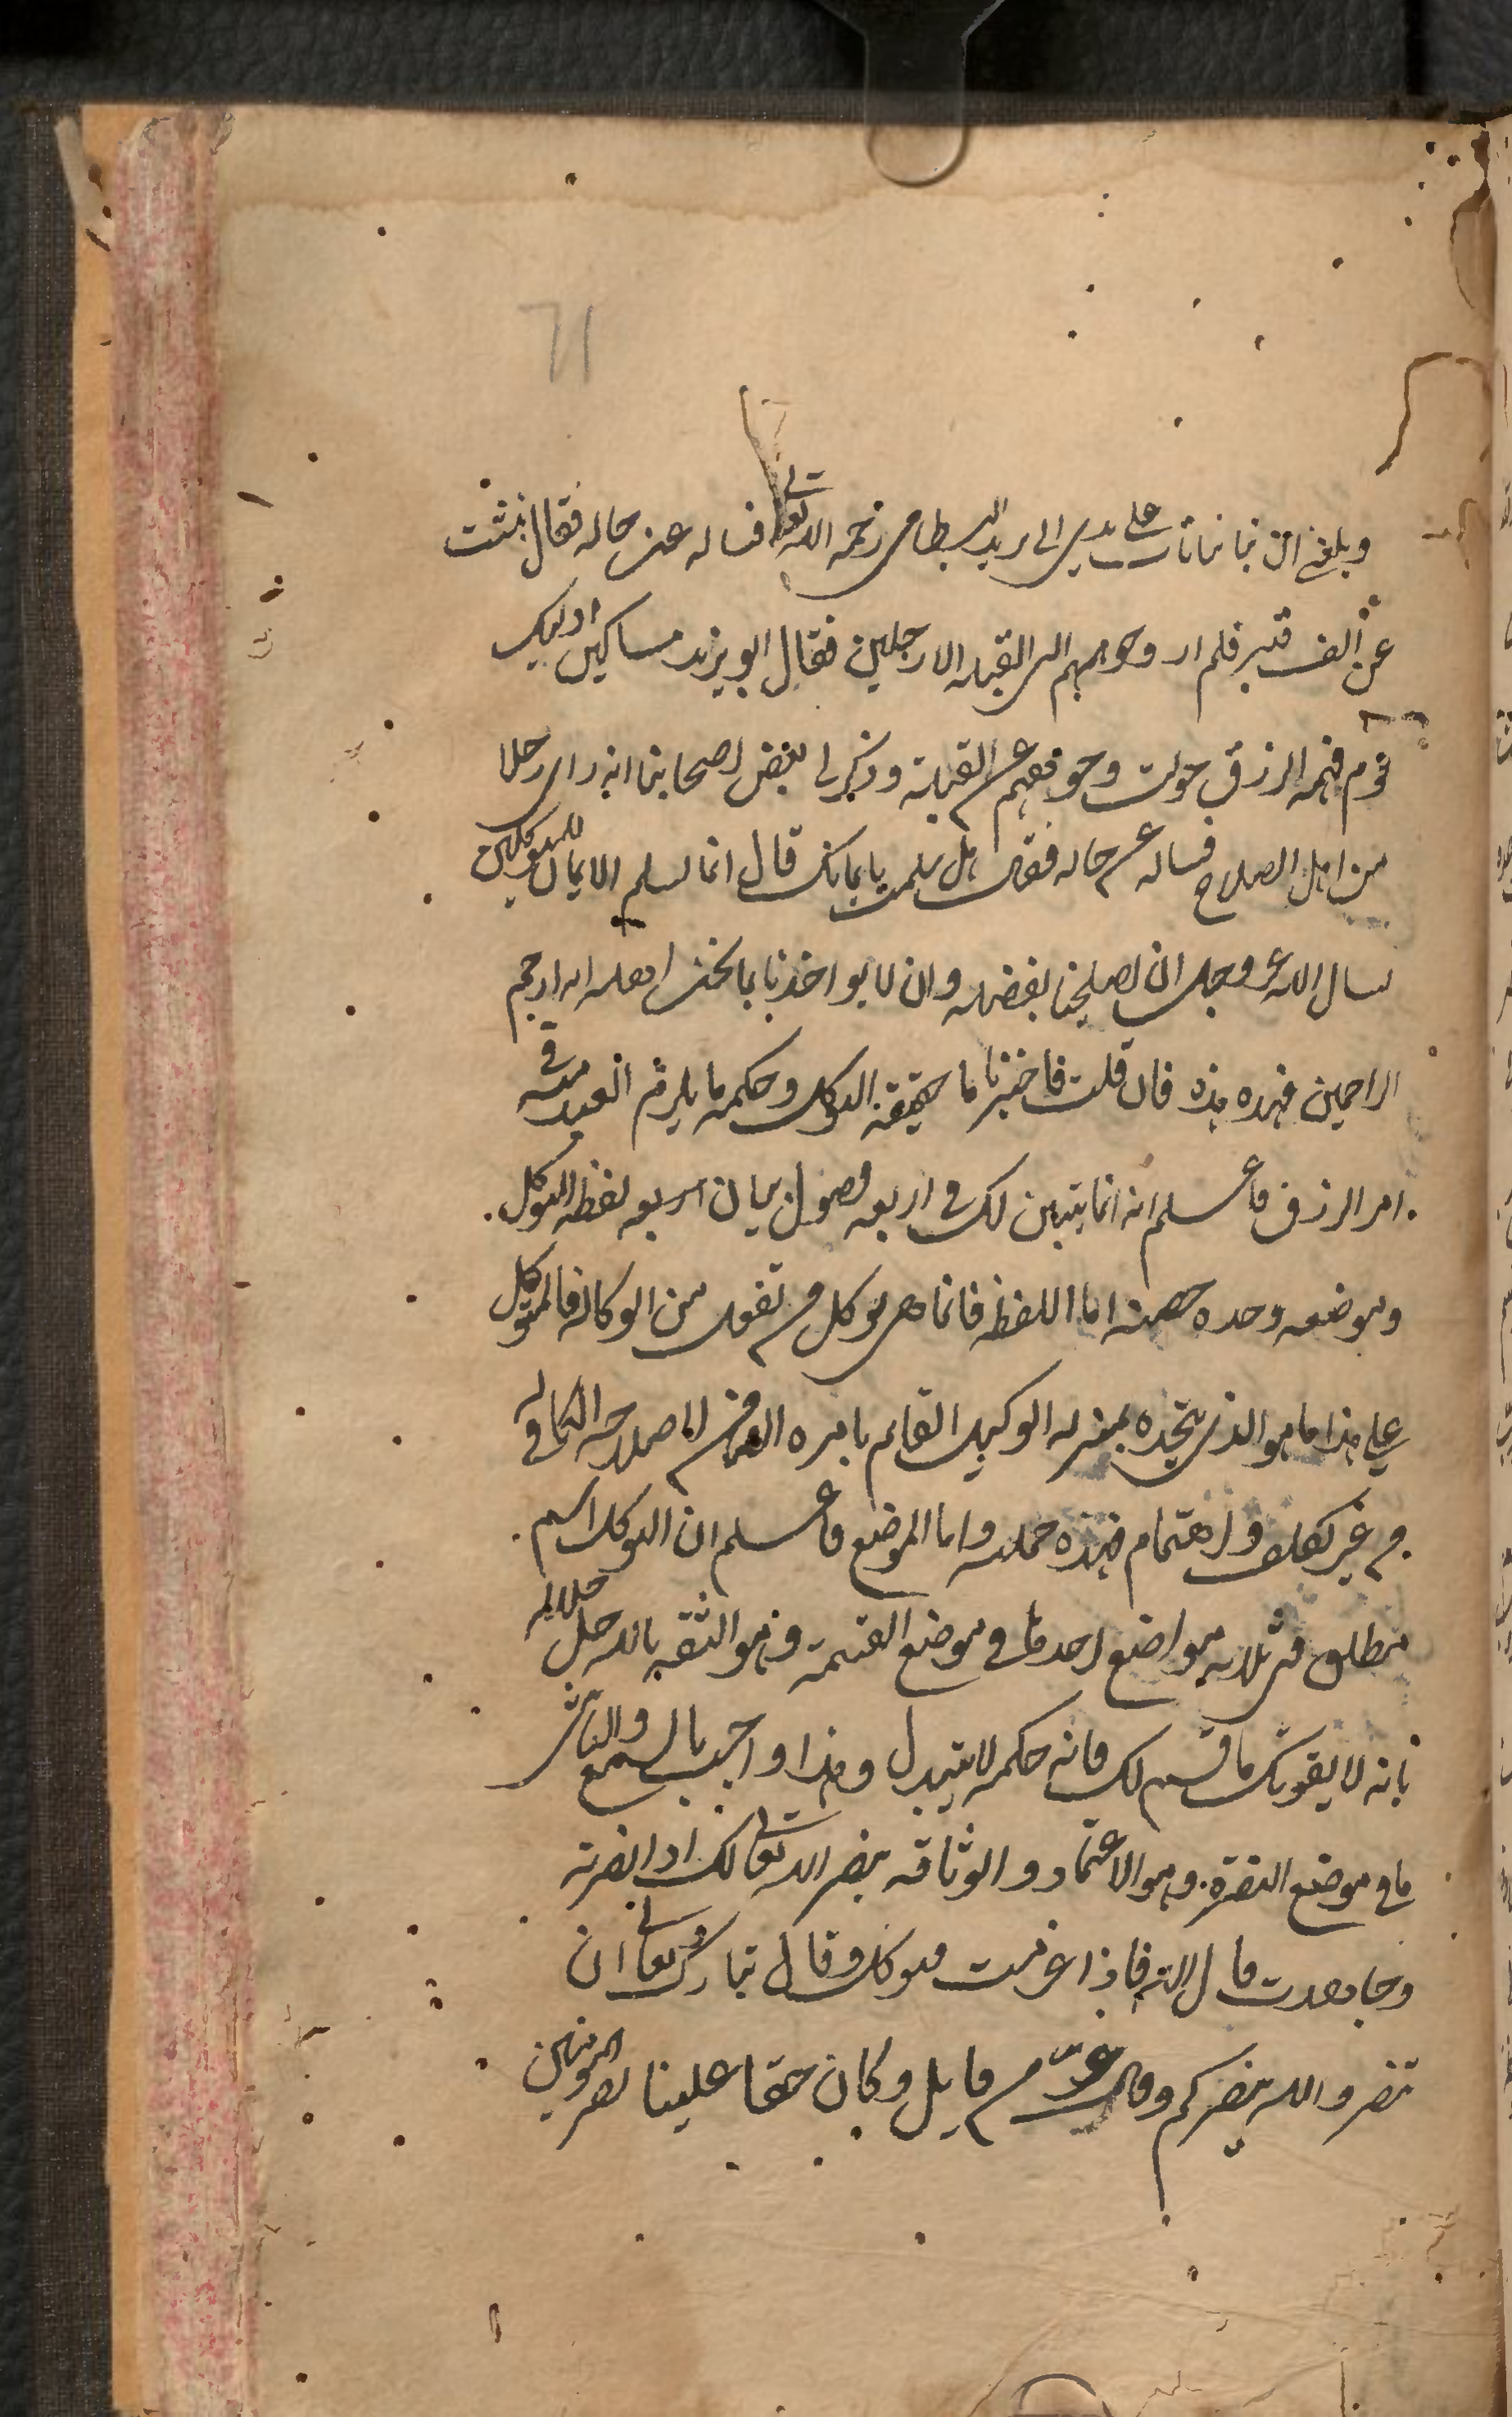 61
وبلغني ان نباشا تاب على يدي ابي يزيد البسطامي رحمه الله تعالى فساله عن حاله فقال نبشت
عن الف قبر فلم ار وجوههم الى القبلة الا رجلين فقال ابو يزيد مساكين اوليك
قوم فهمه الرزق حولت وجوههم عن القبلة وذكر لي بعض اصحابنا انه راى رجلا
من اهل الصلاح فساله عن حاله فقال هل سلمت بايمانك قال انما يسلم الايمان للمتوكلين
نسال الله عز وجل ان يصلحنا بفضله وان لا يواخذنا بما نحن اهله انه ارحم
الراحمين فهذه هذه فان قلت فاخبرنا ما حقيقة التوكل وحكمه ما يلزم العبد منه في
امر الرزق فاعلم انه انما يتبين لك في اربعة فصول بيان اربعه لفظه التوكل
وموضعه وحده حصنه اما اللفظه فانما هي توكل من تفعل من الوكالة فالمتوكل
على هذا ما هو الذي يتخده بمنزلة الوكيل القائم بامره الضامن لاصلاحه الكافي له
من غير تكلف واهتمام فهذه جملته واما الموضع فاعلم ان التوكل اسم
مطلق في ثلاثه مواضع احدها في موضع القسمة وهو الثقة بالله جل جلاله
بانه لا يفوتك ما قسم لك فانه حكمه لا يتبدل وهذا واجب بالسمع والثاني
ما في موضع النصرة وهو الاعتماد والوثاقة بنصر الله تعالى لك اذا نصرته
وجاهدت قال الله فاذا عزمت فتوكل وقال تبارك وتعالى ان
تنصروا الله ينصركم وقال عز من قايل وكان حقا علينا نصر المومنين